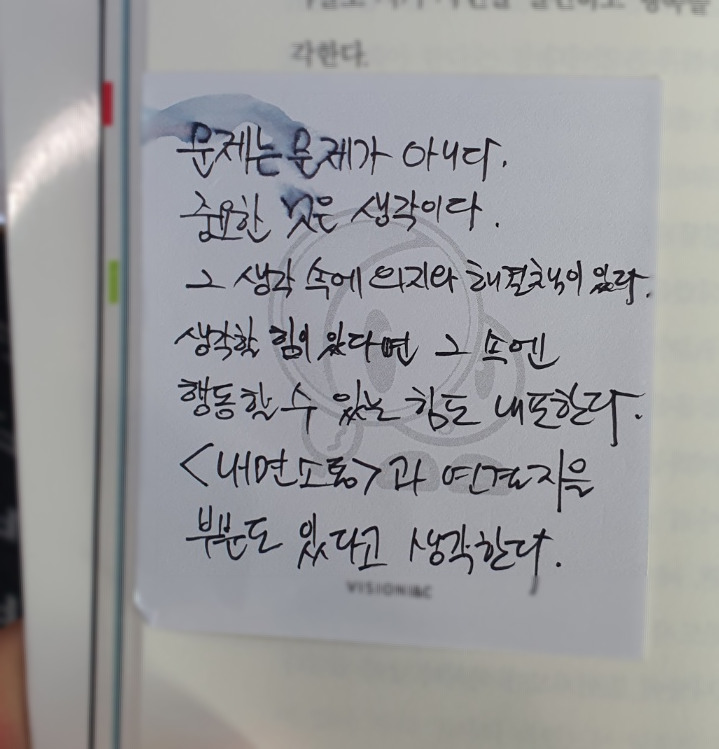 각한다.
문제는 문제가 아니다.
중요한 것은 생각이다.
그 생각 속에 의지와 해결책이 있다.
생각할 힘이 있다면 그 속엔
행동할 수 있는 힘도 내포한다.
<내면소통>과 연결지을
부분도 있다고 생각한다.
VISIONI&C